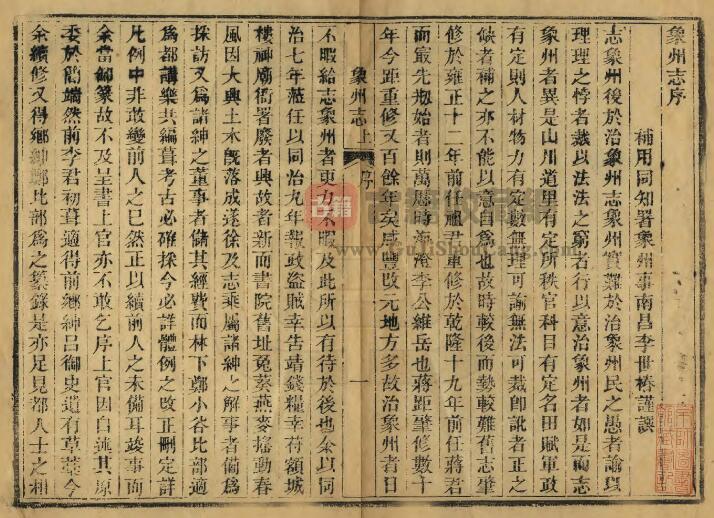 象州志序
補用同知署象州事南昌李世椿謹譔
志象州後於治象州志象州實難於治象州民之愚者諭以
理理之悖者裁以法法之窮者行以意治象州者如是而志
象州者異是山川道里有定所秩官科目有定名田賦軍政
有定則人材物力有定數無理可諭無法可裁即訛者正之
缺者補之亦不能以意自爲也故時較後而勢較難舊志肇
修於雍正十二年前任 君重修於乾隆十九年前任蔣君
而最先刱始者則萬曆時海澄李公維岳也蔣距肇修數十
年今距重修又百餘年矣咸豐改元地方多故治象州者日
象州志上
序
一
不暇給志象州者更力不暇及此所以有待於後也余以同
治七年蒞任以同治九年報政盜賊幸告靖錢糧幸符額城
樓神廟衙署廢者興故者新而書院舊址兔葵燕麥搖動春
風因大興土木旣落成遂徐及志乘屬諸紳之解事者備爲
採訪又爲諸紳之董事者儲其經費而林下鄭小谷比部適
爲都講樂共編葺考古必確採今必詳體例之改正刪定詳
凡例中非敢變前人之已然正以續前人之未備耳竣事而
余當卸篆故不及呈書上官亦不敢乞序上官因自述其原
委於簡端然前李君初葺適得前鄉紳呂御史遺有草藁今
余續修又得鄉紳鄭比部爲之纂錄是亦足見都人士之相
古籍收藏
www.GuJiShouCang.com